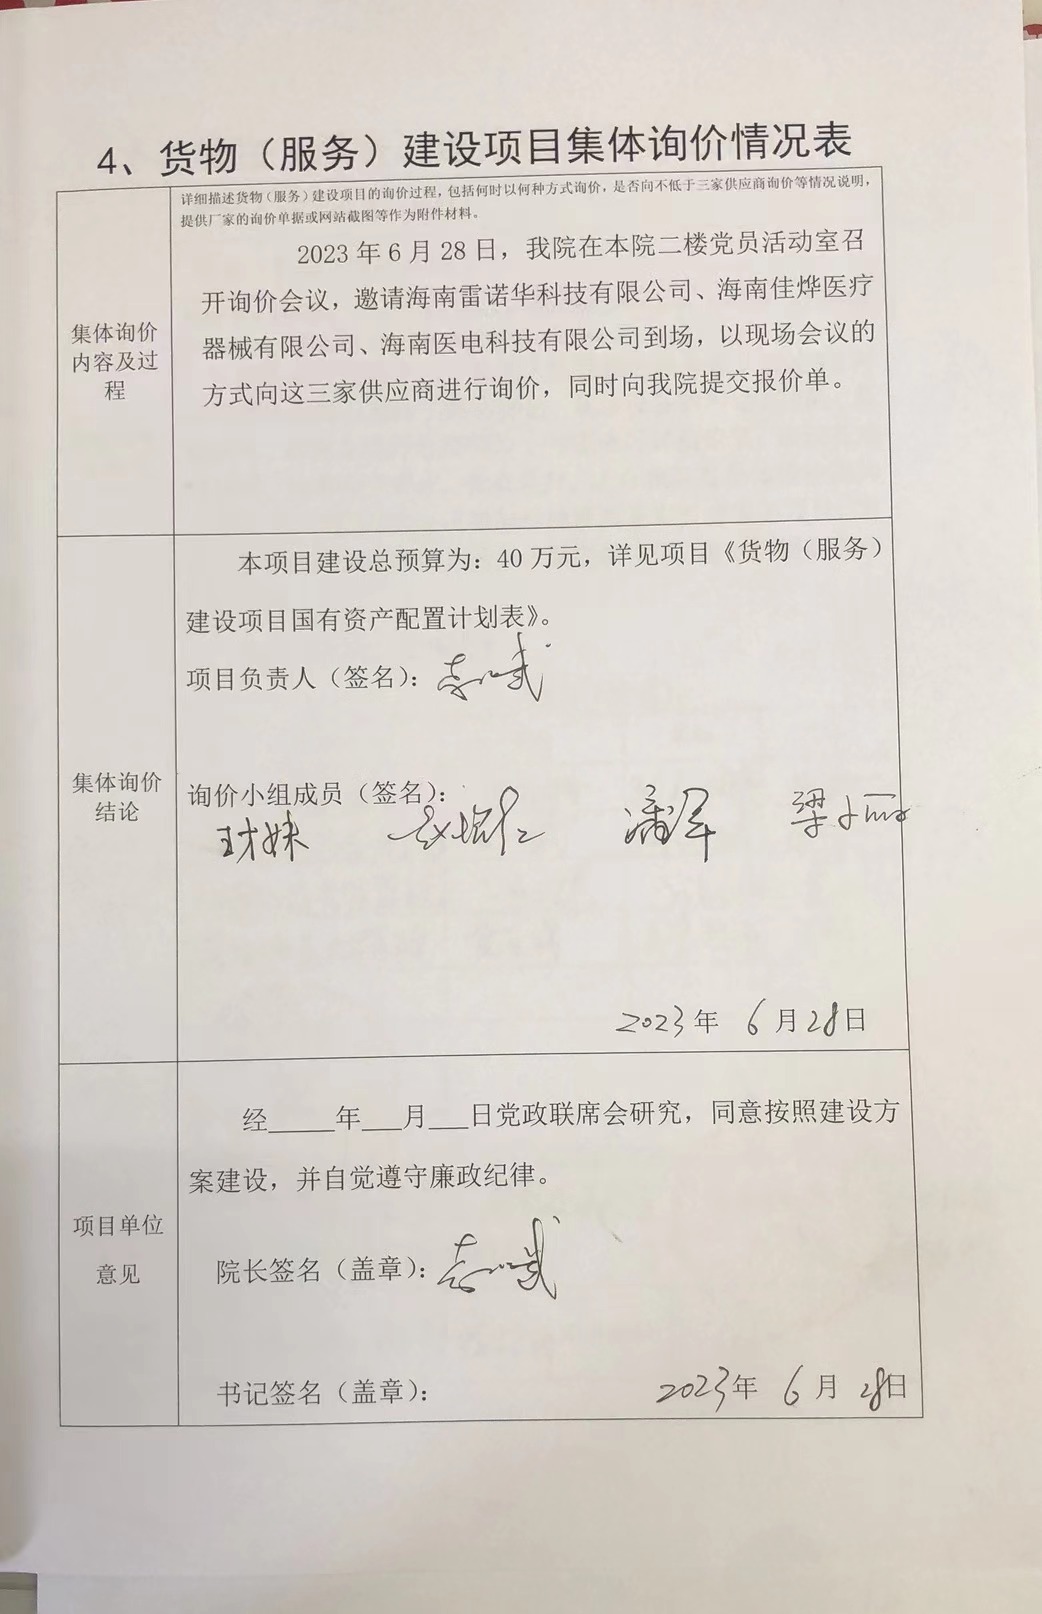 4、货物（服务）建设项目集体询价情况表
详细描述货物（服务）建设项目的询价过程，包括何时以何种方式询价，是否向不低于三家供应商询价等情况说明，
提供厂家的询价单据或网站截图等作为附件材料。
2023年6月28日，我院在本院二楼党员活动室召
开询价会议，邀请海南雷诺华科技有限公司、海南佳烨医疗
器械有限公司、海南医电科技有限公司到场，以现场会议的
方式向这三家供应商进行询价，同时向我院提交报价单。
集体询价
内容及过
程
本项目建设总预算为：40万元，详见项目《货物（服务）
建设项目国有资产配置计划表》。
项目负责人（签名）：
集体询价
结论
询价小组成员（签名）：
2023年 6月28日
经_____年___月___日党政联席会研究，同意按照建设方
案建设，并自觉遵守廉政纪律。
项目单位
意见
院长签名（盖章）：
书记签名（盖章）： 2023年 6月 28日